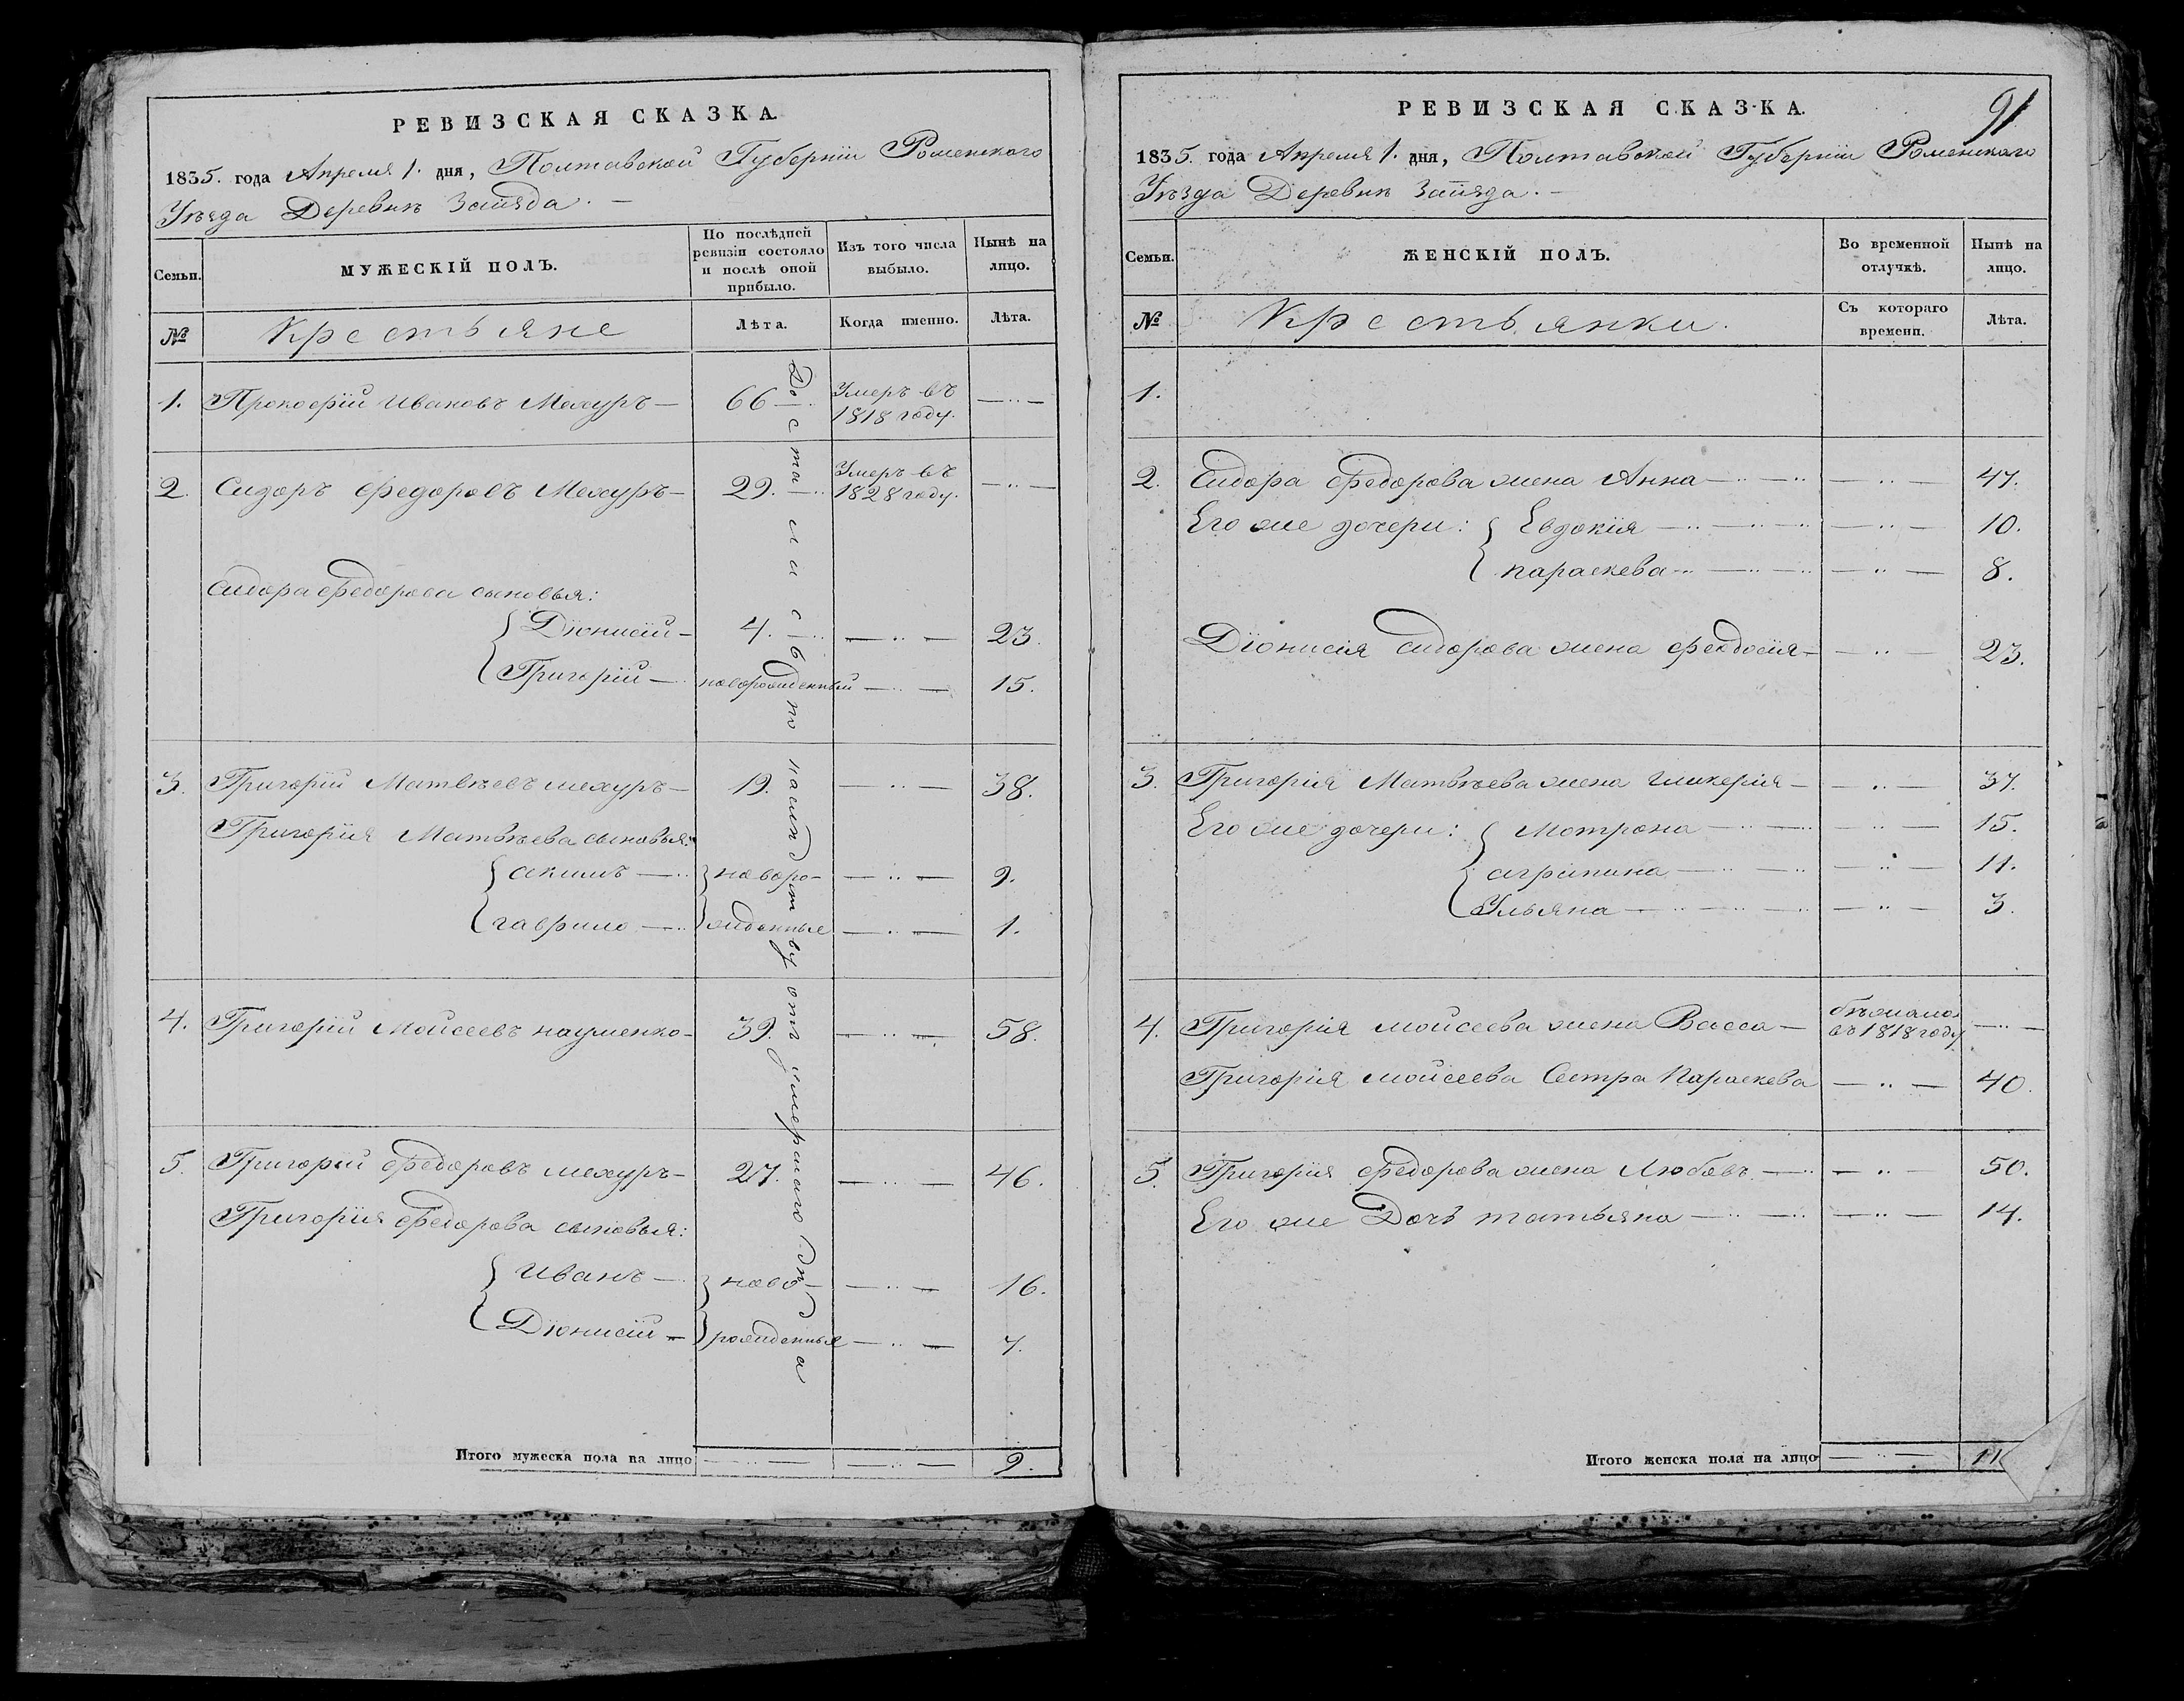 РЕВИЗСКАЯ СКАЗКА.
1835. года Апреля 1. дня, Полтавской Губерніи Роменского
Уѣзда Деревнѣ Запяда. —
Семьи.
МУЖЕСКІЙ ПОЛЪ.
По послѣдней ревизіи состояло и послѣ оной прибыло.
Изъ того числа выбыло.
Нынѣ на лицо.
№
Крестьяне
Лѣта.
Когда именно.
Лѣта.
1. Прокофій Ивановъ Мехуръ — 66 — Умеръ въ 1818 году. —
2. Сидоръ Федоровъ Мехуръ — 29. — Умеръ въ 1828 году. —
Сидора Федорова сыновья:
Діонисій — 4. — 23.
Григорій — новорожденный — 15.
3. Григорій Матвѣевъ мехуръ — 19. — 38.
Григорія Матвѣева сыновья:
акимъ — новоро- — 9.
гаврило — жденные — 1.
4. Григорій Мойсеевъ науменко — 39. — 58.
5. Григорій Федоровъ мехуръ — 27. — 46.
Григорія Федорова сыновья:
Иванъ — ново- — 16.
Діонисій — рожденные — 7.
Достались въ по наслѣдству отъ умершаго Дѣда
Итого мужеска пола на лицо — — 9.
91
РЕВИЗСКАЯ СКАЗКА.
1835. года Апреля 1. дня, Полтавской Губерніи Роменского
Уѣзда Деревнѣ Запяда. —
Семьи.
ЖЕНСКІЙ ПОЛЪ.
Во временной отлучкѣ.
Нынѣ на лицо.
№
Крестьянки.
Съ котораго времени.
Лѣта.
1.
2. Сидора Федорова жена Анна — — 47.
Его же дочери: Евдокія — — 10.
параскева — — 8.
Діонисія Сидорова жена феодосія — — 23.
3. Григорія Матвѣева жена гликерія — — 37.
Его же дочери: Мотрона — — 15.
агрипина — — 11.
Ульяна — — 3.
4. Григорія мойсеева жена Васса — бѣжала въ 1818 году —
Григорія мойсеева Сестра Параскева — 40.
5. Григорія Федорова жена Любовь — — 50.
Его же Дочь татьяна — — 14.
Итого женска пола на лицо — 11